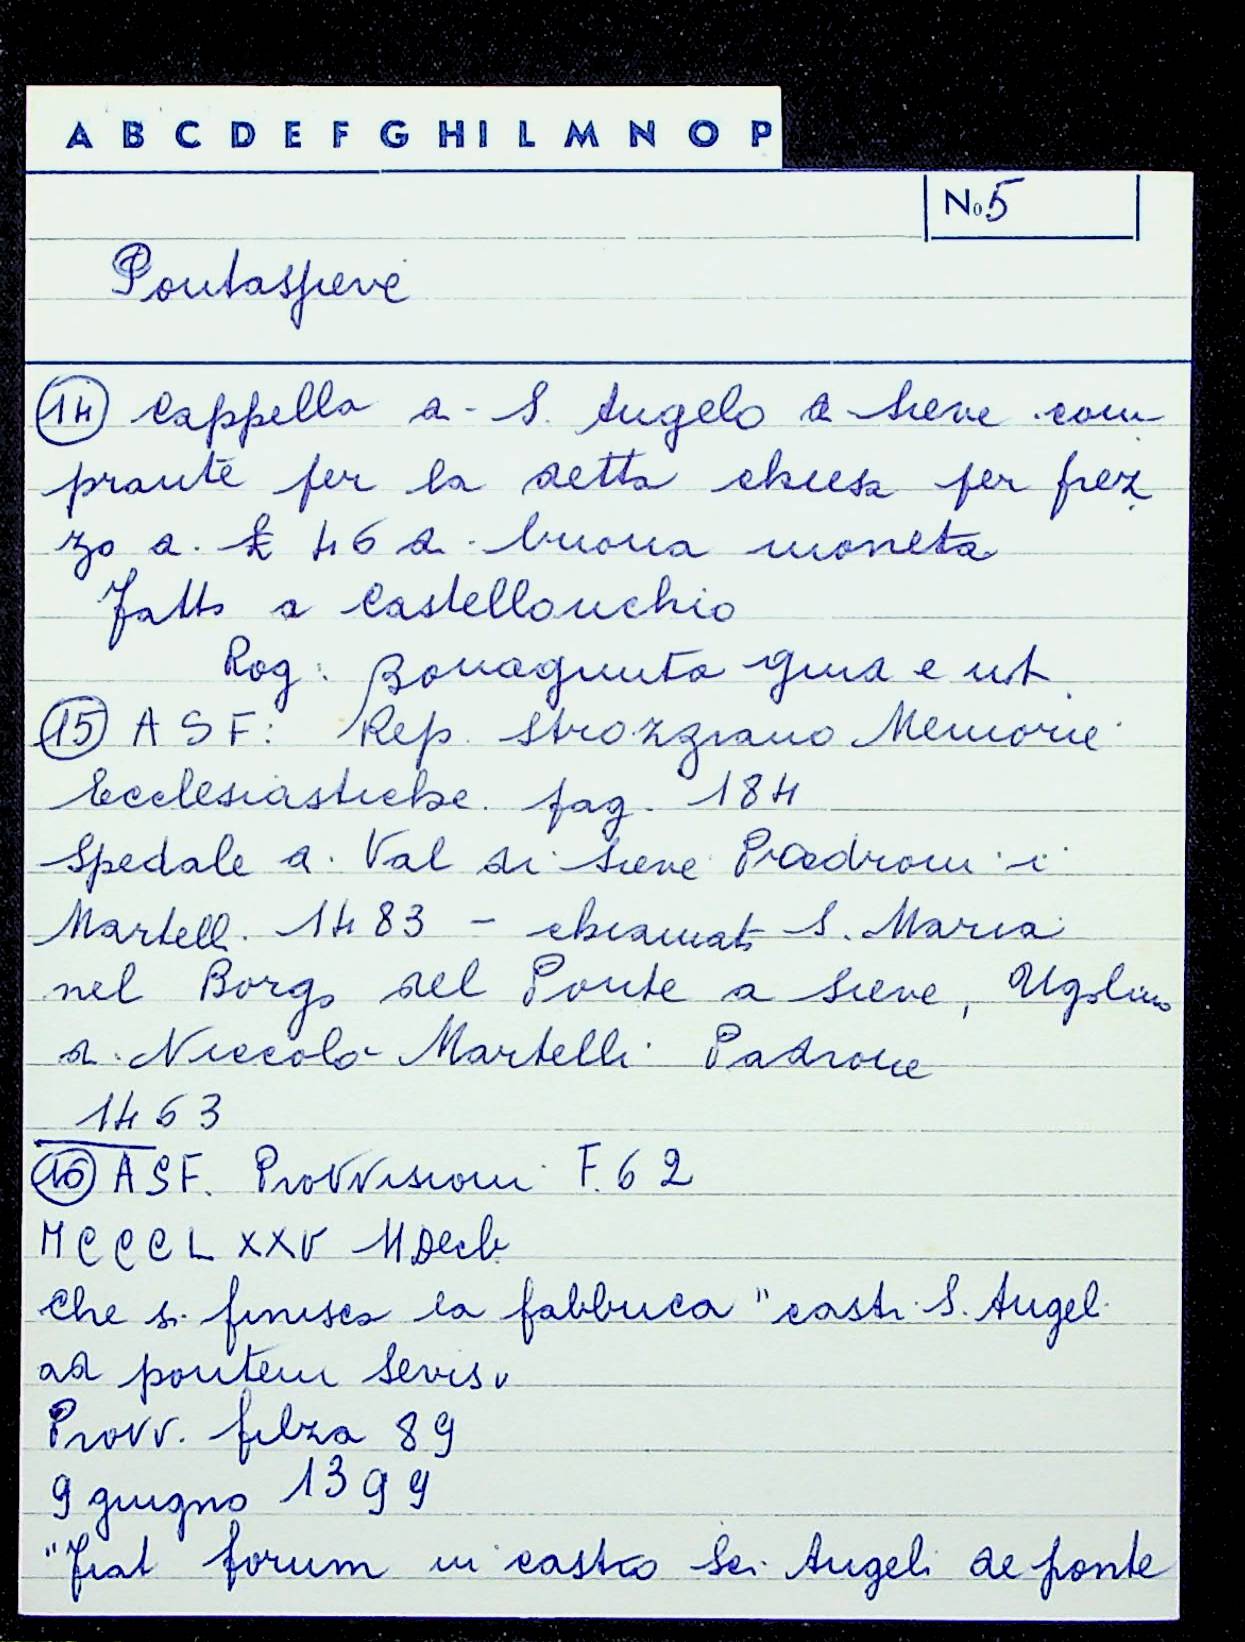 A B C D E F G H I L M N O P
No 5
Pontassieve
14 Cappella a S. Angelo a Sieve com
prante per la detta chiesa per prez
zo di £ 46 di buona moneta
Fatto a Castellonchio
Rog: Bonagiunta
15 ASF: Rep. Strozziano Memorie
Ecclesiastiche. pag. 184
Spedale di Val di Sieve Padroni i
Martelli. 1483 - chiamato S. Maria
nel Borgo del Ponte a Sieve, Ugolino
di Niccolò Martelli Padrone
1463
16 ASF. Provvisioni F. 62
MCCCLXXV 11 Decb
Che si finisca la fabbrica "castri S. Angeli
ad pontem Sevis"
Provv. filza 89
9 giugno 1399
"Fiat forum in castro Sci Angeli de ponte